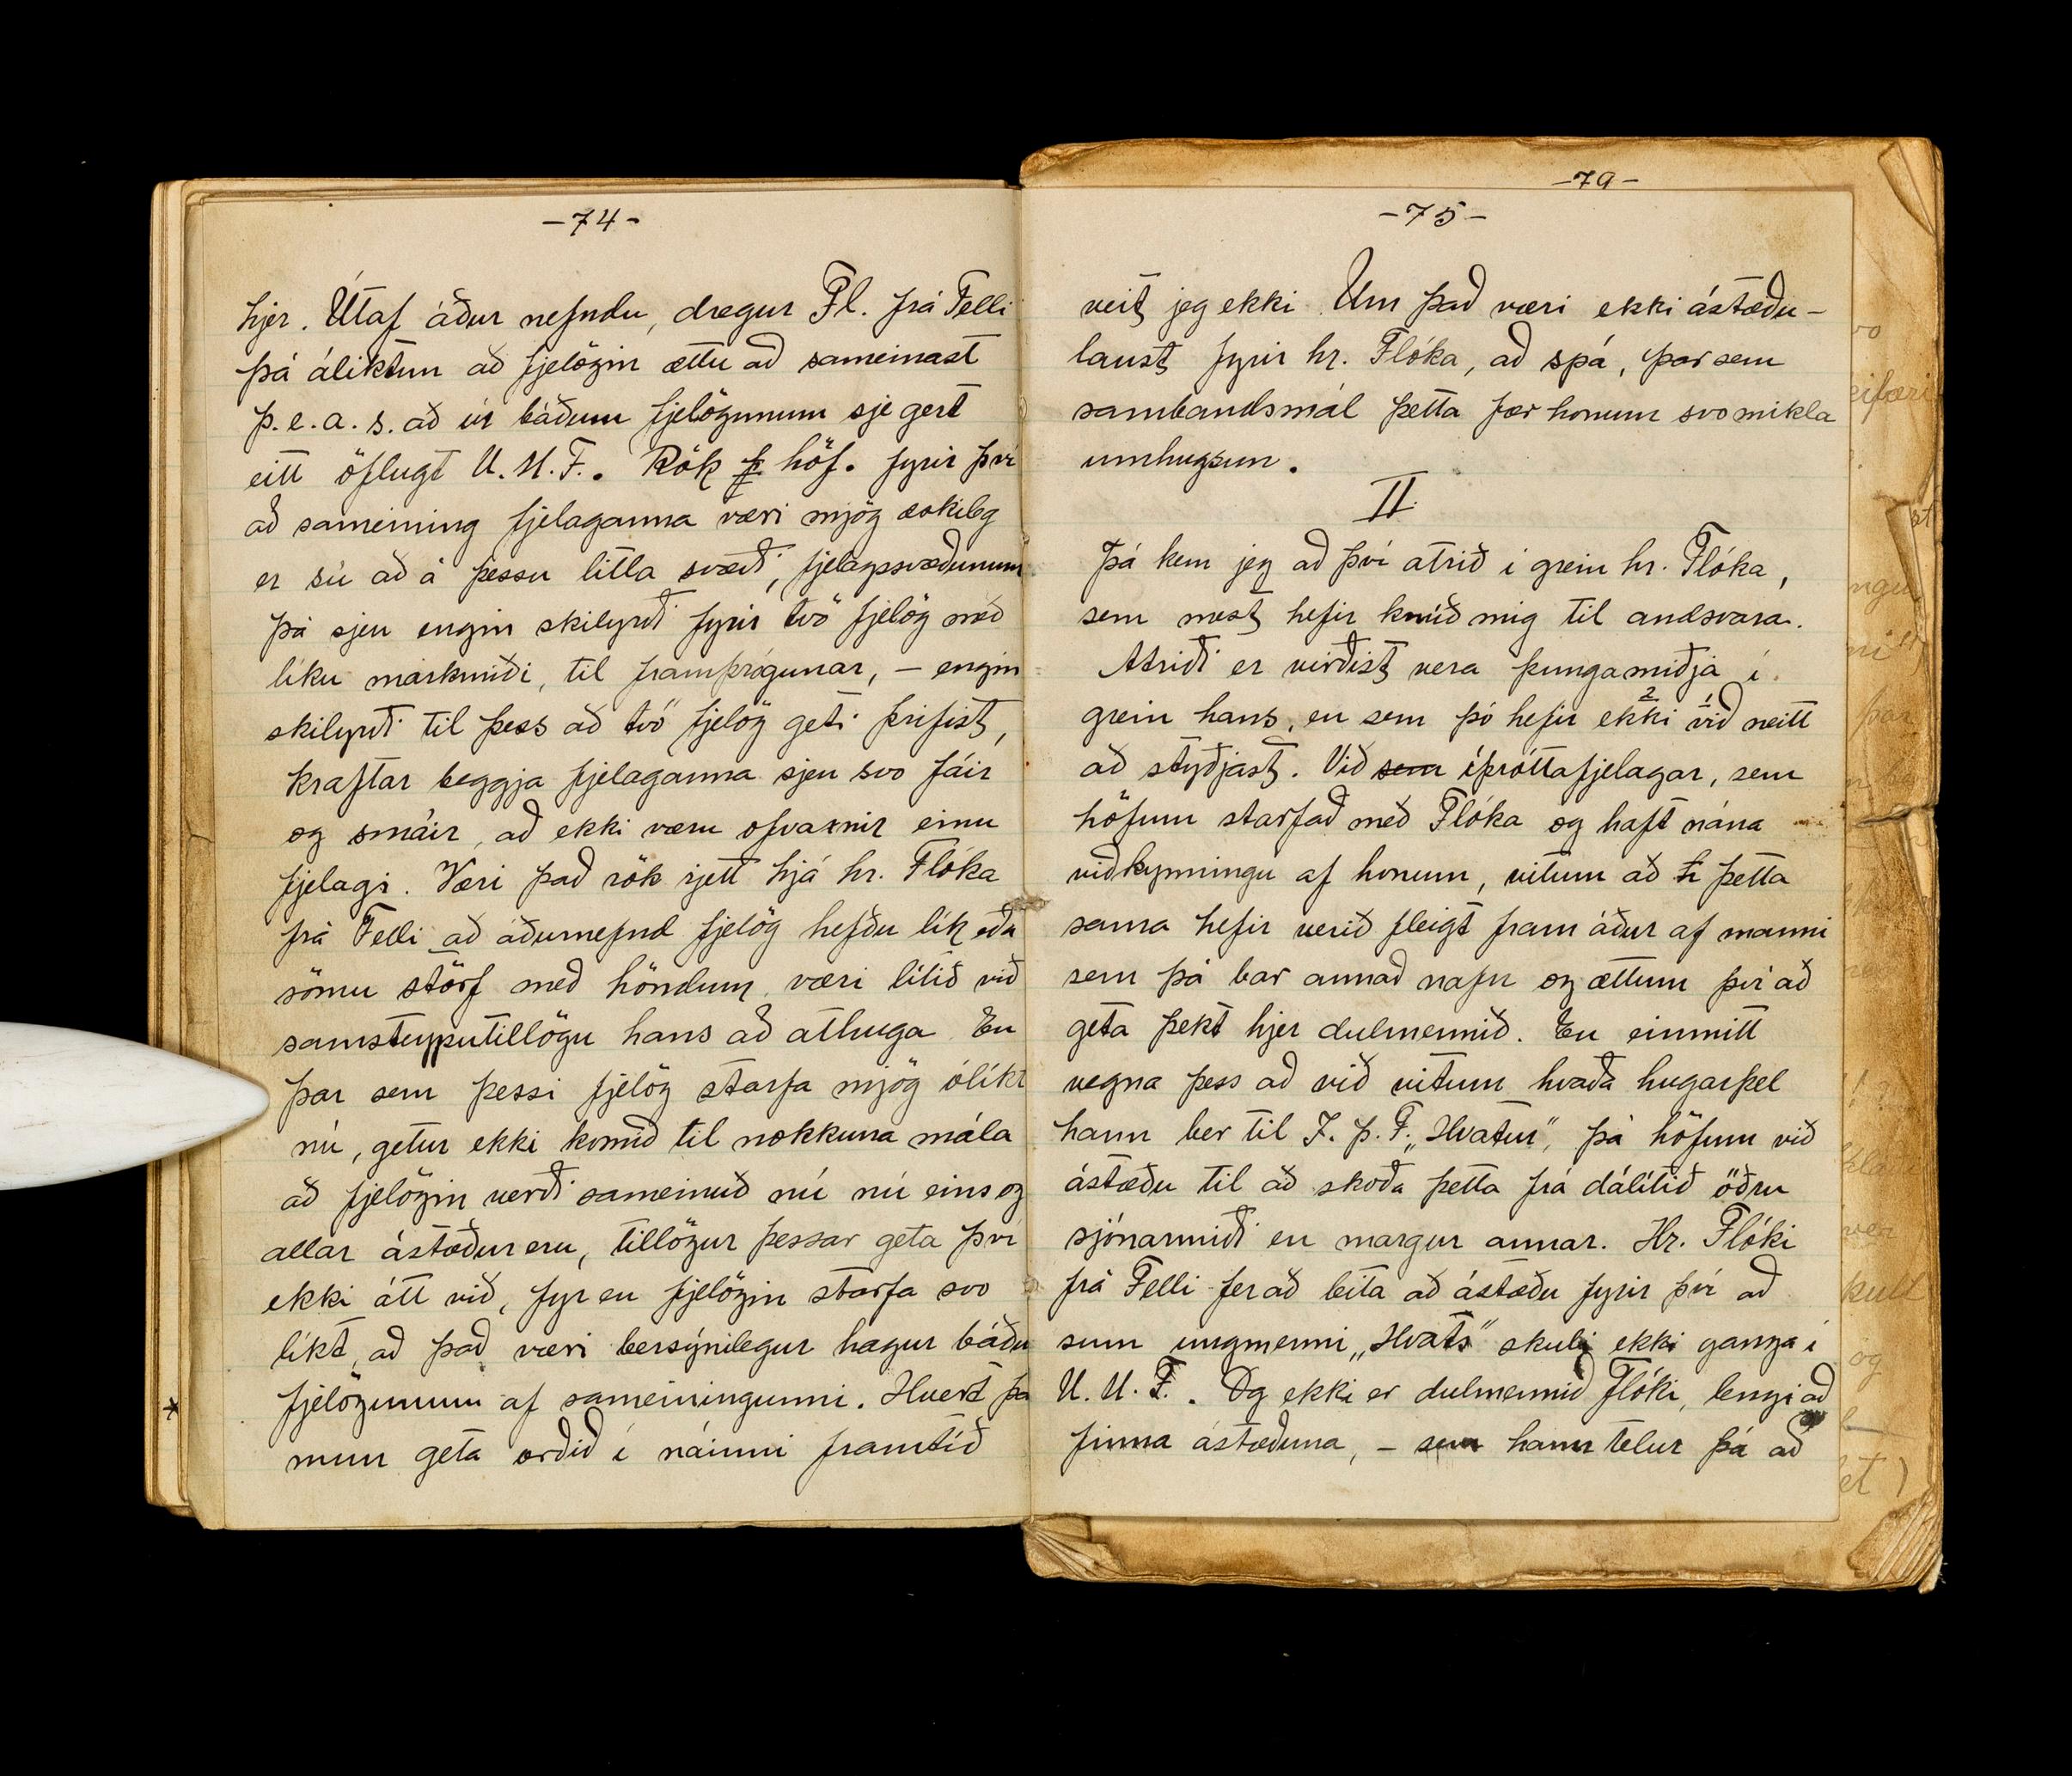 -74-
hjer. Útaf áður nefndu, dregur Fl. frá Felli
þá áliktun að fjelögin ættu að sameinast
þ.e.a.s. að úr báðum fjelögunum sje gert
eitt öflugt U.M.F.. Rök f höf. fyrir því
að sameining fjelaganna væri mjög æskileg
er sú að á þessu litla svæði, fjelagssvæðunum
þá sjeu engin skilyrði fyrir tvö fjelög með
líku markmiði, til framþrógunar, - engin
skilyrði til þess að tvö fjelög geti þrifist,
kraftar beggja fjelaganna sjeu svo fáir
og smáir, að ekki væru ofvaxnir einu
fjelagi. Væri það rök rjett hjá hr. Flóka
frá Felli að áðurnefnd fjelög hefðu lík eða
sömu störf með höndum væri lítið við
samsteyputillögu hans að athuga En
þar sem þessi fjelög starfa mjög ólíkt
nú, getur ekki komið til nokkura mála
að fjelögin verði sameinuð nú nú eins og
allar ástæður eru, tillögur þessar geta því
ekki átt við, fyr en fjelögin starfa svo
líkt, að það væri bersýnilegur hagur báðu
fjelögunum af sameiningunni. Hvert þa
mun geta orðið í náinni framtíð
-79-
-75-
veit jeg ekki Um það væri ekki ástæðu-
laust fyrir hr. Flóka, að spá, þar sem
sambandsmál þetta fær honum svo mikla
umhugsun.
II.
Þá kem jeg að því atrið í grein hr. Flóka,
sem mest hefir knúið mig til andsvara.
Atriði er virðist vera þungamiðja í
grein hans, en sem þó hefir ekki við neitt
að styðjast. Við sem íþróttafjelagar, sem
höfum starfað með Flóka og haft nána
viðkynningu af honum, vitum að h þetta
sama hefir verið fleigt fram áður af manni
sem þá bar annað nafn og ættum því að
geta þekt hjer dulmennið. En einmitt
vegna þess að við vitum hvaða hugarþel
hann ber til Í.þ.F. „Hvatur", þá höfum við
ástæðu til að skoða þetta frá dálítið öðru
sjónarmiði en margur annar. Hr. Flóki
frá Felli fer að leita að ástæðu fyrir því að
sum ungmenni „Hvats" skuli ekki ganga í
U.M.F. . Og ekki er dulmennið Flóki, lengi að
finna ástæðuna, - sem hann telur þá að